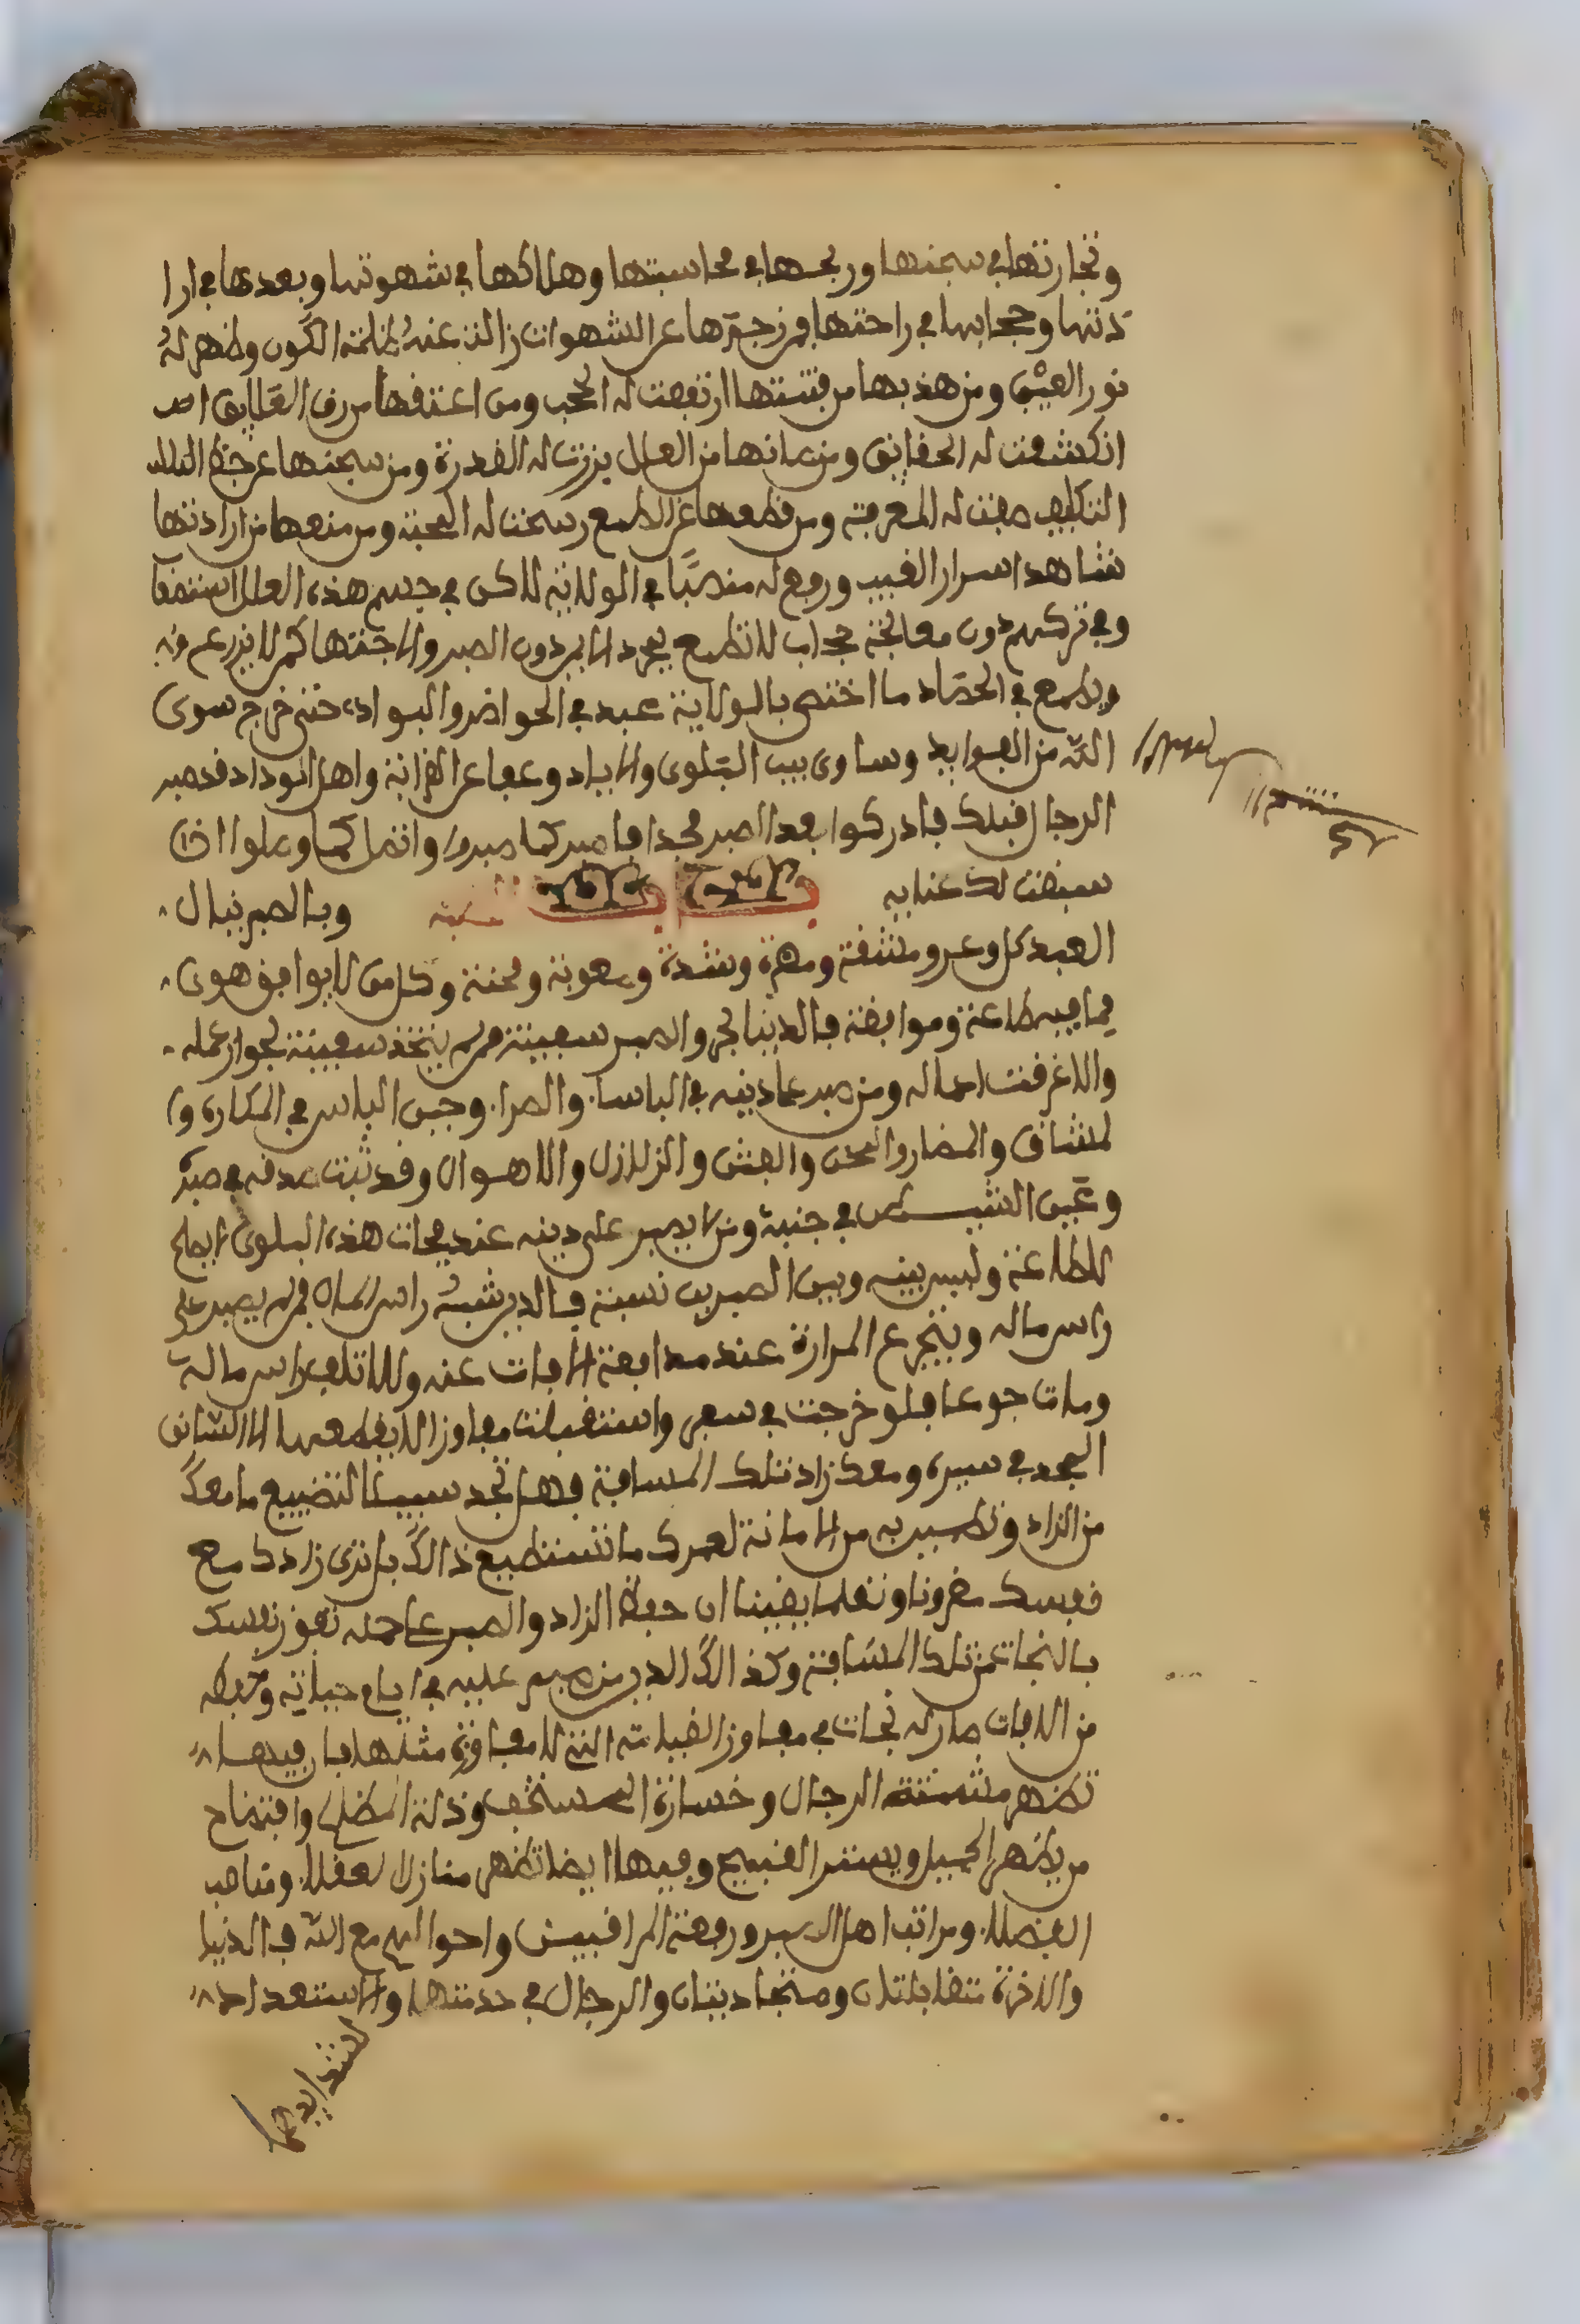 وتجارتها في سجنها وربحها في محاسبتها وهلاكها في شهوتها وبعدها في ارا
دتها وحجابها في راحتها فمن زجرها عن الشهوات زالت عنه ظلمة الكون وظهر له
نور العيش ومن هذبها من فتنتها ارتفعت له الحجب ومن اعتقها من رق العلايق
انكشفت له الحقايق ومن عاتها من العلل بززت له القدرة ومن سجنها عن
التكليف صفت له المعرفة ومن قطعها عن الطمع رسخت له المحبة ومن منعها من ارادتها
شاهد اسرار الغيب ورفع له منصبًا في الولاية لاكن في جسم هذه العلل
وفي تركهم دون معالجة حجاب لا تطمع دون الصبر
ويطمع في الحصاد ما اختص بالولاية عبد في الحواضر والبواد، حتى خرج سوى
الله من الفوايد وساوى بين البلوى والاياد وعفا عن القرابة واهل الوداد فصبر
الرجال قبلك فادركوا بعد الصبر مجدا فاصبر كما صبروا واعمل كما عملوا ان
سبقت لك عنايه وبالصبر ينال
العبد كل وعر ومشقة ومضرة وشدة وصعوبة ومحنة وكل من لا يوافق هوى
فيما فيه طاعة وموافقة فالدنيا بحر والصبر سفينة فمن لم يتخذ سفينة لجواز عمله
والا غرقت اعماله ومن صبر على دينه في الباسا والضرا وحين الباس في المكاره وا
لمشاق والمضار والمحن والفتن والزلازل والاهوال وقد ثبت صدقه في صبره
ومن لا يصبر على دينه عند هذه البلوى لا يصلح
للطاعة وليس بينه وبين الصبر نسبة فالدين شبه راس المال فمن لم يصبر على
راس ماله ويتجرع المرارة عند مدافعة الافات عنه والا تلف راس ماله
ومات جوعا فلو خرجت في سفر واستقبلت مفاوز لا يقطعها الا الشاق
المجد في سيره ومعك زاد تلك المسافة فهل تجد سبيلا لتضييع ما معك
من الزاد من الامانة لعمرك ما تستطيع ذالك بل ترى زادك مع
نفسك مقرونا وتعلم يقينا ان حفظ الزاد والصبر على حمله تفوز نفسك
بالنجات من تلك المسافة وكذالك الدين من صبر عليه في ايام حياته وحفظه
من الافات صار له نجات في مفاوز القيامة التي لا مفاوزة مثلها فان فيها
تظهر مشقة الرجال وخسارة المستخف وذلة المظلم وافتضاح
من يظهر الجميل ويستر القبيح وفيها ايضا تظهر منازل العقلا ومناصب
الفضلا ومراتب اهل الصبر ورفعة المراقبين واحوالهم مع الله فالدنيا
والاخرة متقابلتان ومتجاذبتان والرجال في خدمتها والاستعداد
لشدايدها